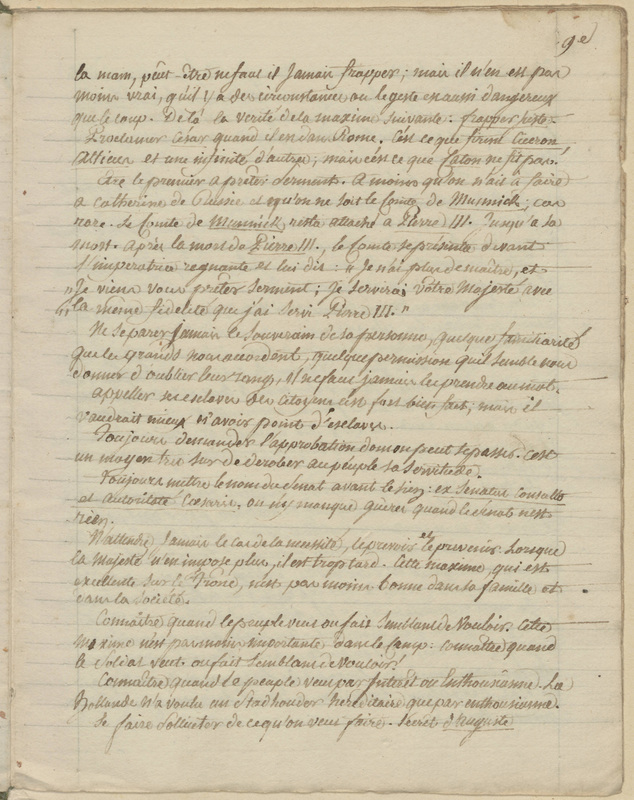 9e
la main, peut-être ne faut il Jamais frapper; mais il n'en est pas
moins vrai, qu'il y a des circonstances ou le geste est aussi dangereux
que le coup. De là la verité de la maxime suivante. frapper juste.
Proclamer César quand il est dans Rome. C'est ce que firent Ciceron,
Atticus et une infinité d'autres; mais c'est ce que Caton ne fit pas.
Etre le premier a prêter serment. A moins qu'on n'ait à faire
a Catherine de Russie et qu'on ne soit le Comte de Munnick; cas
rare. Le Comte de Munnick resta attaché a Pierre III. Jusqu'a sa
mort. Après la mort de Pierre III., le Comte se présenta devant
l'imperatrice regnante et lui dit: « Je n'ai plus de maître, et
" Je viens vous prêter serment; Je servirai votre Majesté avec
" la même fidelité que j'ai servi Pierre III. "
Ne separer jamais le Souverain de sa personne, quelque familiarité
que les grands nous accordent, quelque permission qu'ils semblent nous
donner d'oublier leur rang, Il ne faut jamais les prendre au mot.
appeller ses esclaves des citoyens c'est fort bien fait; mais il
vaudrait mieux n'avoir point d'esclaves.
Toujours demander l'approbation dont on peut se passer. c'est
un moyen très sur de derober au peuple sa servitude.
Toujours mettre le nom du Sénat avant le sien: ex Senatus Consulto
et autoritate Caesaris, on n'y manque gueres quand le sénat n'est
rien.
N'attendre Jamais le cas de la nécessité, le prevoir et le prevenir. Lorsque
la majesté n'en impose plus, il est trop tard. Cette maxime, qui est
excellente sur le Trone, n'est pas moins bonne dans sa famille et
dans la société.
Connaître quand le peuple veut ou fait Semblant de Vouloir. Cette
maxime n'est pas moins importante dans le Camp: connaître quand
le soldat veut ou fait semblant de vouloir!
Connaître quand le peuple veut par Interêt ou Enthousiasme. La
Hollande n'a voulu un stadhouder hereditaire que par enthousiasme.
Se faire solliciter de ce qu'on veut faire. Secret d'Auguste